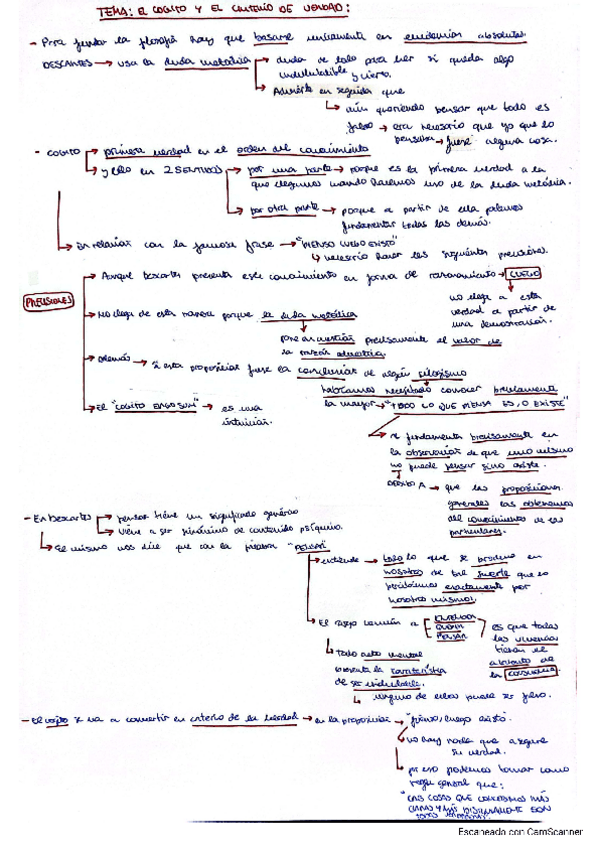 TEMA: EL COGITO Y EL CRITERIO DE VERDAD:
- Para fundar la filosofía hay que basarse únicamente en evidencias absolutas
DESCARTES → usa la duda metódica → duda de todo para ver si queda algo
indubitable y cierto.
→ Advierte en seguida que
↳ aún queriendo pensar que todo es
falso → era necesario que yo que lo
pensaba → fuese alguna cosa.
- COGITO → primera verdad en el orden del conocimiento
→ y ello en 2 SENTIDOS → por una parte → porque es la primera verdad a la
que llegamos cuando hacemos uso de la duda metódica.
→ por otra parte → porque a partir de ella podemos
fundamentar todas las demás.
→ En relación con la famosa frase → "PIENSO LUEGO EXISTO"
↳ necesario hacer las siguientes precisiones.
PRECISIONES
→ Aunque Descartes presenta este conocimiento en forma de razonamiento → LUEGO
no llega a esta
verdad a partir de
una demostración.
→ No llega de esta manera porque la duda metódica
pone en cuestión precisamente el valor de
la
→ Además → si esta proposición fuese la conclusión de algún silogismo
habríamos necesitado conocer previamente
la mayor → "TODO LO QUE PIENSA ES, O EXISTE"
→ El "COGITO ERGO SUM" → es una
intuición.
→ se fundamenta precisamente en
la observación de que uno mismo
no puede pensar si no existe.
DEBIDO A → que las proposiciones
generales las obtenemos
del conocimiento de las
particulares.
- En Descartes → pensar tiene un significado genérico
→ viene a ser sinónimo de contenido psíquico.
→ Él mismo nos dice que con la palabra "PENSAR"
→ entiende → todo lo que se produce en
nosotros de tal suerte que lo
percibimos exactamente por
nosotros mismos.
→ El rasgo común a
ENTENDER
QUERER
PENSAR
es que todas
las vivencias
tienen el
atributo de
la consciencia
↳ todo acto mental
presenta la característica
de ser indudable.
↳ ninguno de ellos puede ser falso.
- El cogito se va a convertir en criterio de la verdad → en la proposición → "pienso, luego existo".
→ no hay nada que asegure
su verdad.
→ por eso podemos tomar como
regla general que:
"LAS COSAS QUE CONCEBIMOS MÁS
CLARAS Y MÁS DISTINTAMENTE SON
TODAS VERDADERAS".
Escaneado con CamScanner